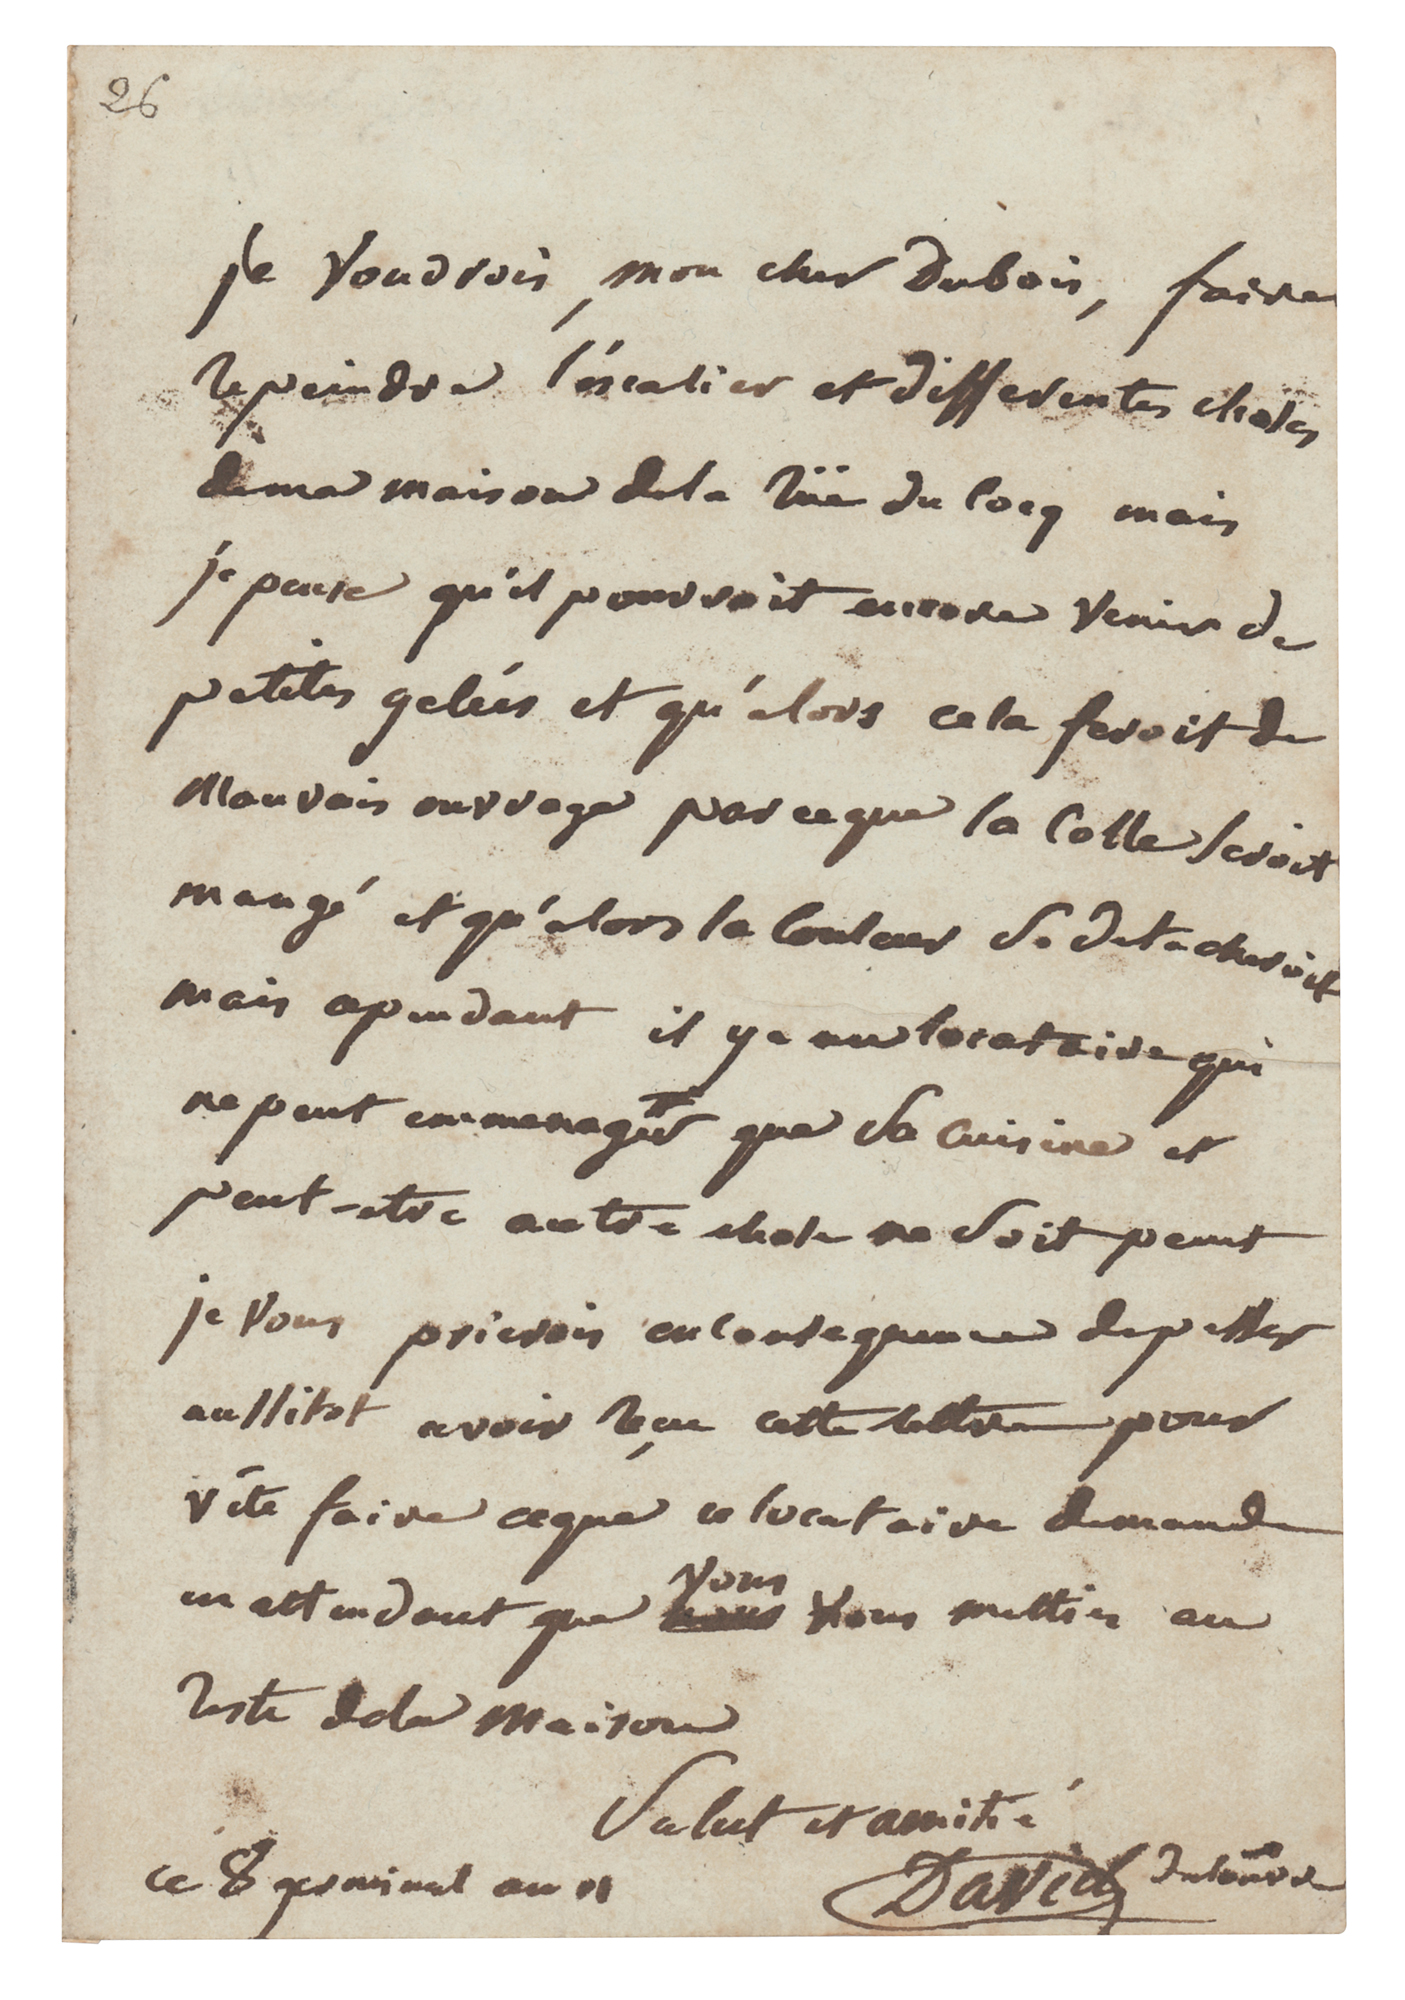 26
je voudrois, mon cher Dubois, faire
repeindre l'éscalier et differentes choses
de ma maison de la rüe du Cocq mais
je pense qu'il pourroit encore venir de
petites gelées et qu'alors cela feroit de
mauvais ouvrage parceque la colle seroit
mangé et qu'alors la couleur se detacheroit
mais cependant il y a un locataire qui
ne peut emmenager que sa cuisine et
peut-etre autre chose ne soit peint
je vous prierois en consequence de passer
aussitot avoir reçu cette lettre pour
vîte faire ceque ce locataire demande
en attendant que vous vous mettiez au
reste de la maison
Salut et amitié
David du Louvre
ce 8 germinal an 11